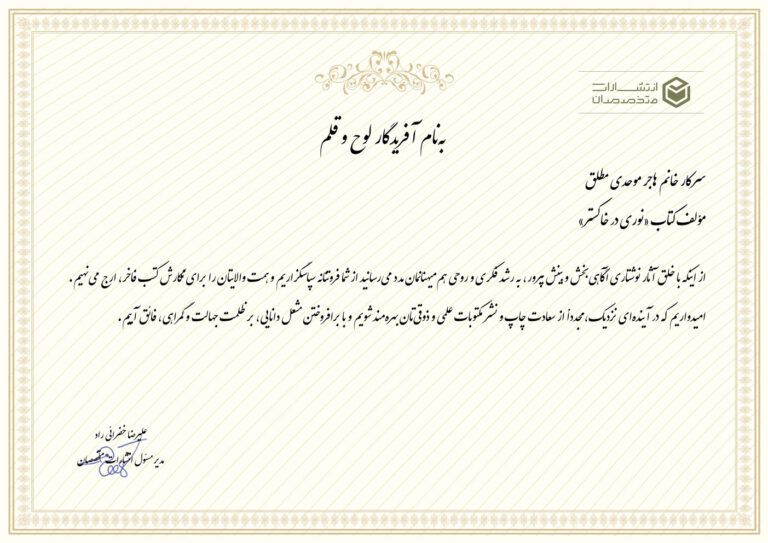 انتشارات
متخصصان
به‌نام آفریدگار لوح و قلم
سرکار خانم هاجر موحدی مطلق
مؤلف کتاب «نوری در خاکستر»
از اینکه با خلق آثار نوشتاری آگاهی‌بخش و بینش پرور، به رشد فکری و روحی هم میهنانمان مدد می‌رسانید از شما فروتنانه سپاسگزاریم و همت والایتان را برای نگارش کتب فاخر، ارج می‌نهیم.
امیدواریم که در آینده‌ای نزدیک، مجدداً از سعادت چاپ و نشر مکتوبات علمی و ذوقی‌تان بهره‌مند شویم و با برافروختن مشعل دانایی، بر ظلمت جهالت و گمراهی، فائق آییم.
علیرضا خفرائی راد
مدیر مسئول انتشارات متخصصان